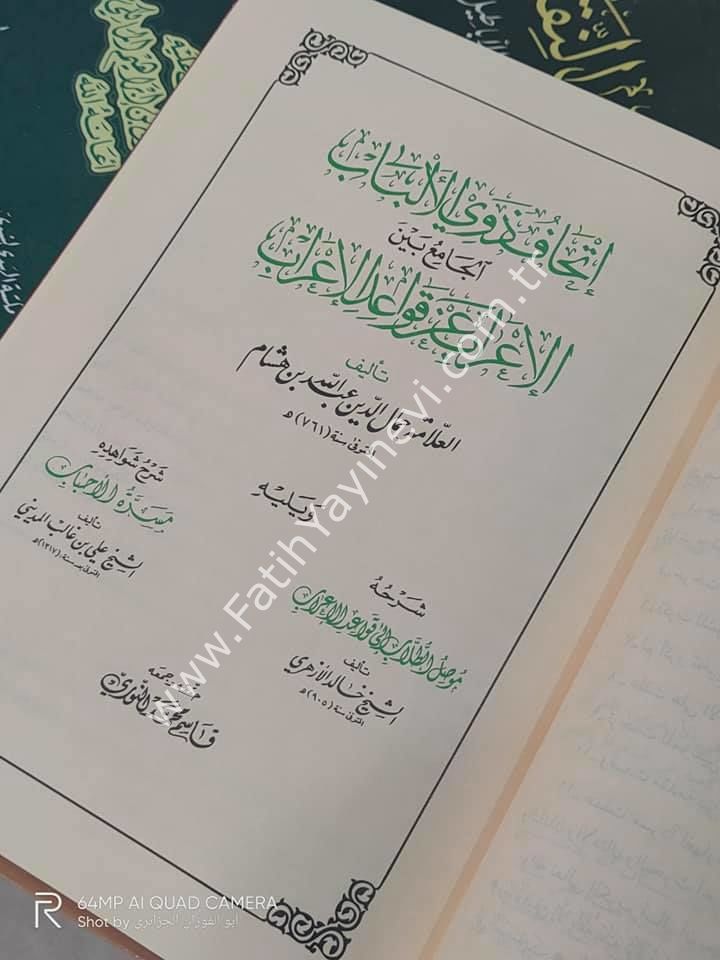 إتحاف ذوي الألباب
الجامع بين
الإعراب عن قواعد الإعراب
تأليف
العلامة جمال الدين عبد الله بن هشام
المتوفى سنة (٧٦١) هـ
ويليه
شرحه
موصل الطلاب إلى قواعد الإعراب
تأليف
الشيخ خالد الأزهري
المتوفى سنة (٩٠٥) هـ
شرح شواهده
مسرة الأحباب
تأليف
الشيخ علي بن غالب المديني
المتوفى بعد سنة (١٣١٧) هـ
قاسم محمد النوري
www.FatihYayinevi.com.tr
64MP AI QUAD CAMERA
Shot by أبو الفوزان الجزائري